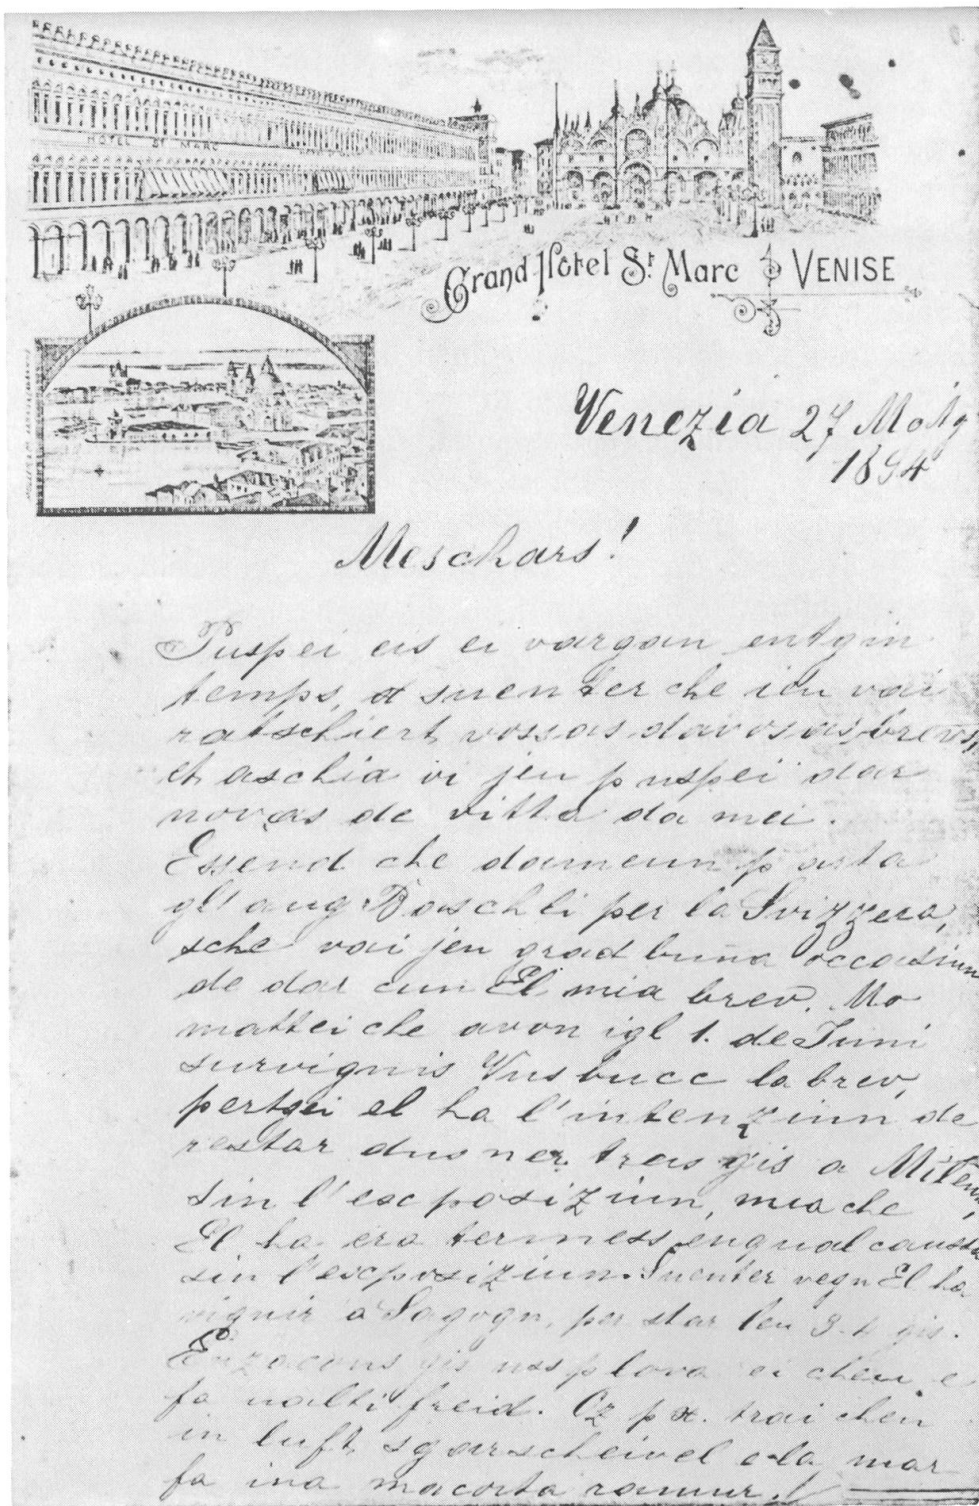 HÔTEL St MARC
Grand Hôtel St Marc VENISE
Venezia 27 Matg
1894
Meschars!
Puspei eis ei vargau entgin
temps, suenter che iou vai
ratschiert vossas davosas brevs,
et aschia vi jeu puspei dar
novas de vitta da mei.
Essend che dameun parta
gl'aug Baschli per la Svizzera,
sche vai jeu grad buna occasiun
de dar cun El mia brev. Mo
mattei che avon igl 1. de Juni
survignis Vus bucc la brev,
pertgei el ha l'intenziun de
restar dus ner treis gis a Milaun,
sin l'escposiziun, mia che
El ha era termess enqual caussa
sin l'escposiziun. Suenter vegn El ha
vignir a Sagogn, per star leu 3. 4 gis.
Enzacons gis uss plova ei cheu e
fa nalti freid. Oz px. trai cheu
in luft sgarscheivel e la mar
fa ina macorta ramur.